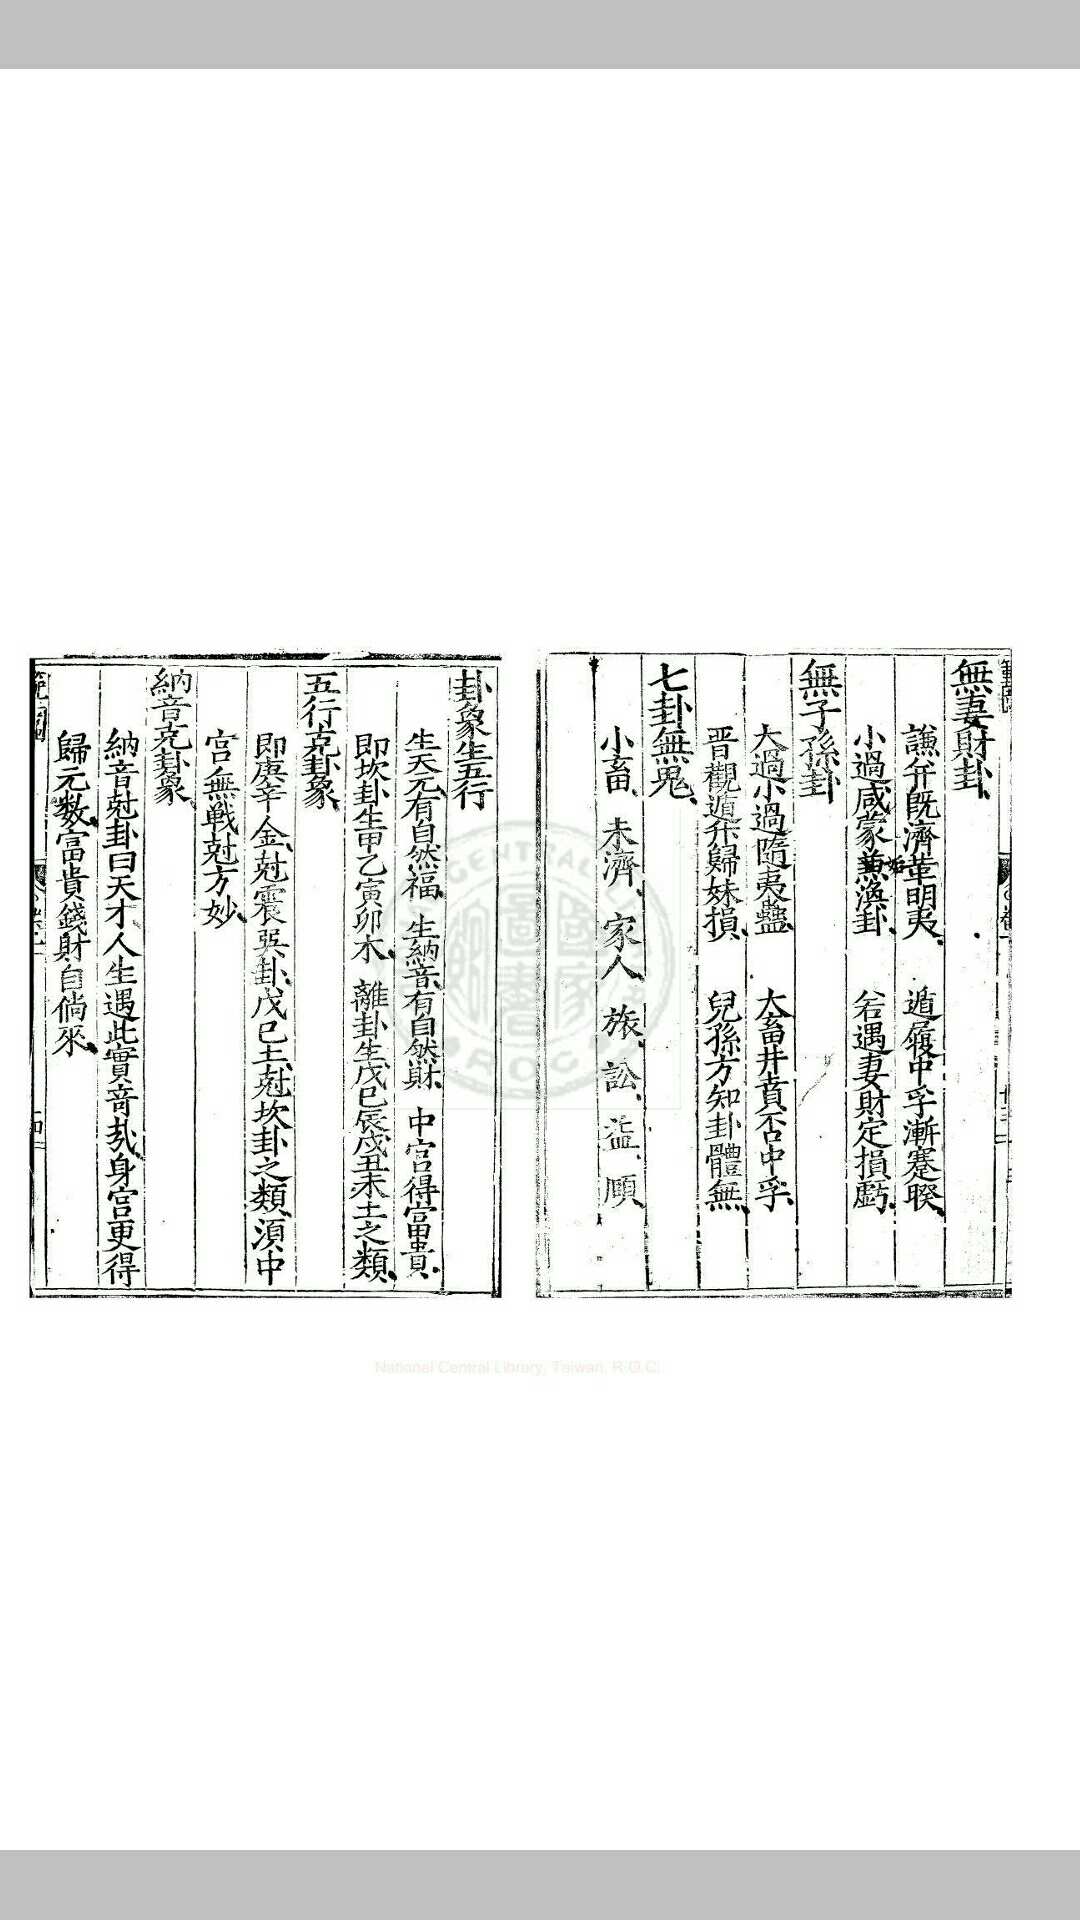 無妻財卦
謙弁既濟革明夷　遁履中孚漸蹇睽
小過咸蒙姤渙卦　若遇妻財定損虧
無子孫卦
大過小過隨夷蠱　大畜井賁否中孚
晋觀遁升歸妹損　兒孫方知卦體無
七卦無鬼
小畜　未濟　家人　旅　訟　益　頤
卦象生五行
生天元有自然福　生納音有自然財　中宫得富貴
即坎卦生甲乙寅卯木　離卦生戊巳辰戌丑未土之類
五行克卦象
即庚辛金尅震巽卦戊巳土尅坎卦之類湏中
宫無戰尅方妙
納音克卦象
納音尅卦曰天才人生遇此實竒㢤身宫更得
歸元数富貴錢財自倘來
National Central Library, Taiwan, R.O.C.